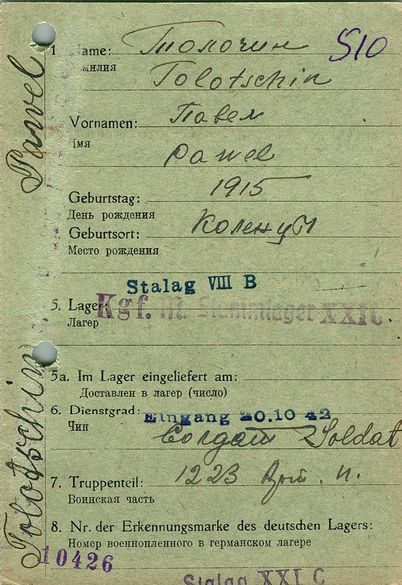 1 ame: Толочин 510
милия
Tolotschin
Vornamen: Павел
Имя
Pawel
Geburtstag: 1915
День рождения
Geburtsort:
Место рождения
Stalag VIII B
5. Lager: Kgf. M. Stammlager XXI C
Лагер
5a. Im Lager eingeliefert am:
Доставлен в лагер (число)
6. Dienstgrad: Eingang 20.10 42
Чин Солдат Soldat
7. Truppenteil: 1223 Арт. п.
Воинская часть
8. Nr. der Erkennungsmarke des deutschen Lagers:
Номер военнопленного в германском лагере
10426
Stalag XXI C
Tolotschin Pawel